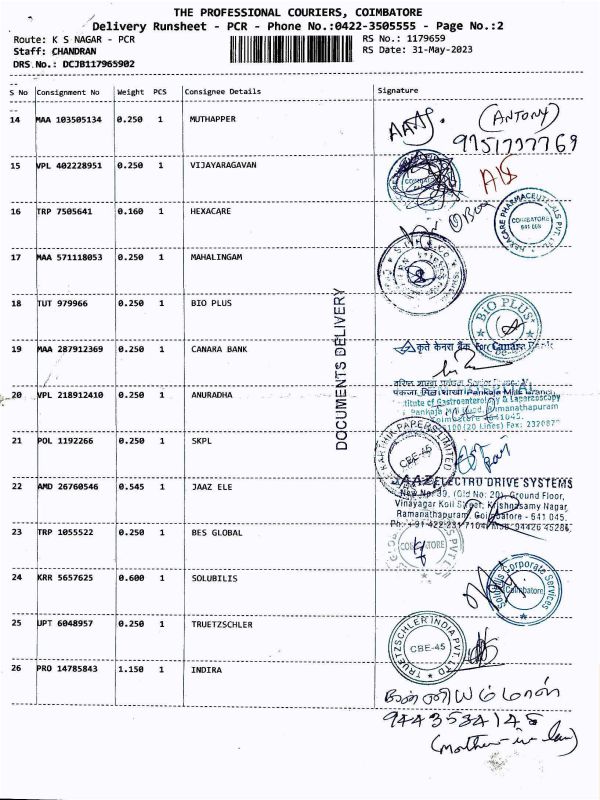 THE PROFESSIONAL COURIERS, COIMBATORE
Delivery Runsheet - PCR - Phone No.:0422-3505555 - Page No.:2
Route: K S NAGAR - PCR
RS No.: 1179659
Staff: CHANDRAN
RS Date: 31-May-2023
DRS No.: DCJB117965902
S No Consignment No Weight PCS Consignee Details Signature
14 MAA 103505134 0.250 1 MUTHAPPER
(ANTONY)
15 VPL 402228951 0.250 1 VIJAYARAGAVAN
16 TRP 7505641 0.160 1 HEXACARE
HEXACARE PHARMACEUTICALS PVT. LTD.
COIMBATORE
17 MAA 571118053 0.250 1 MAHALINGAM
DOCUMENTS DELIVERY
18 TUT 979966 0.250 1 BIO PLUS
BIO PLUS
19 MAA 287912369 0.250 1 CANARA BANK
कृते केनरा बैंक For Canara Bank
20 VPL 218912410 0.250 1 ANURADHA
Institute of Gastroenterology & Laparoscopy
Coimbatore 641045.
21 POL 1192266 0.250 1 SKPL
KARTHIK PAPERS LIMITED
CBE-45
22 AMD 26760546 0.545 1 JAAZ ELE
JAAZ ELECTRO DRIVE SYSTEMS
New No: 39, (Old No: 20), Ground Floor,
Vinayagar Koil Street, Krishnasamy Nagar,
Ramanathapuram, Coimbatore - 641 045.
23 TRP 1055522 0.250 1 BES GLOBAL
24 KRR 5657625 0.600 1 SOLUBILIS
Solubilis Corporate Services
Coimbatore
25 UPT 6048957 0.250 1 TRUETZSCHLER
TRUETZSCHLER INDIA PVT. LTD
CBE-45
26 PRO 14785843 1.150 1 INDIRA
(Mother-in-law)